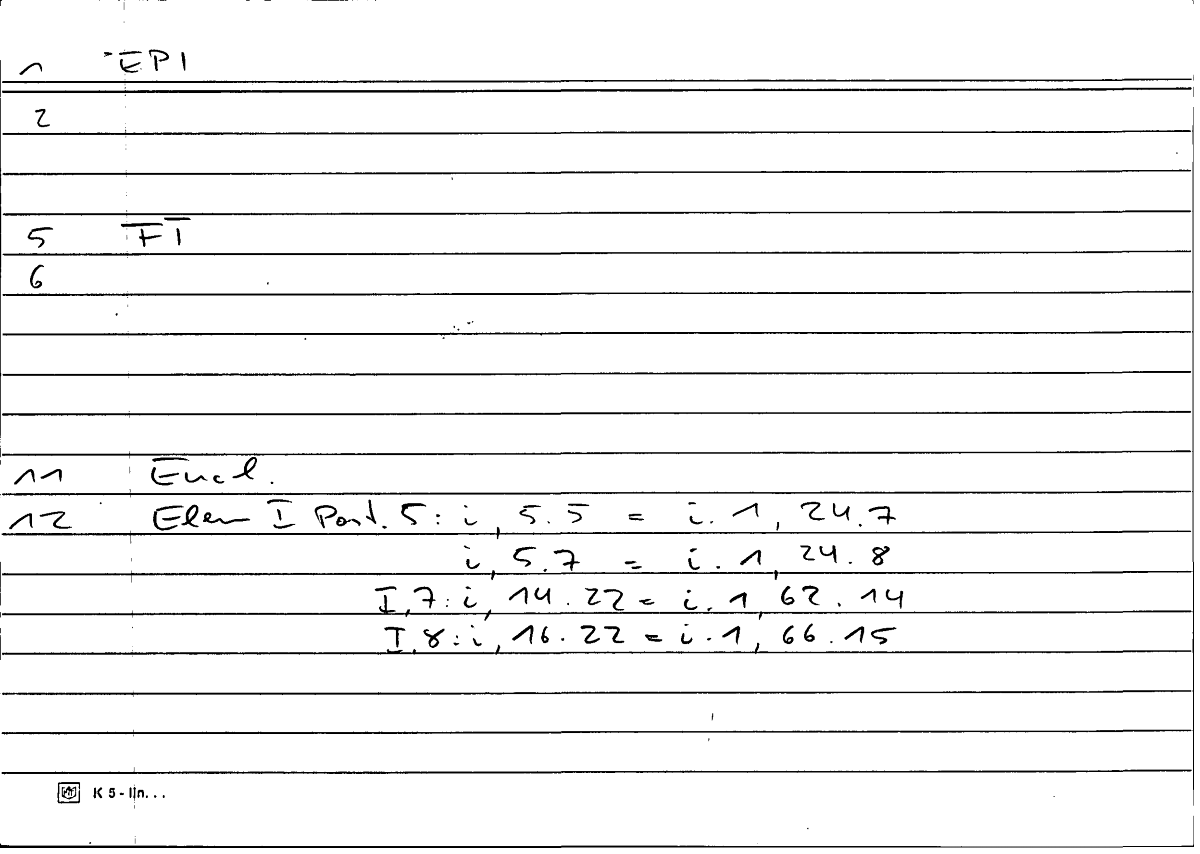 1 EPI
2
5 FT
6
11 Eucl.
12 Elem I Post. 5: i, 5.5 = i. 1, 24.7
i, 5.7 = i. 1, 24.8
I, 7: i, 14.22 = i. 1, 62.14
I, 8: i, 16.22 = i. 1, 66.15
K 5 - lin...